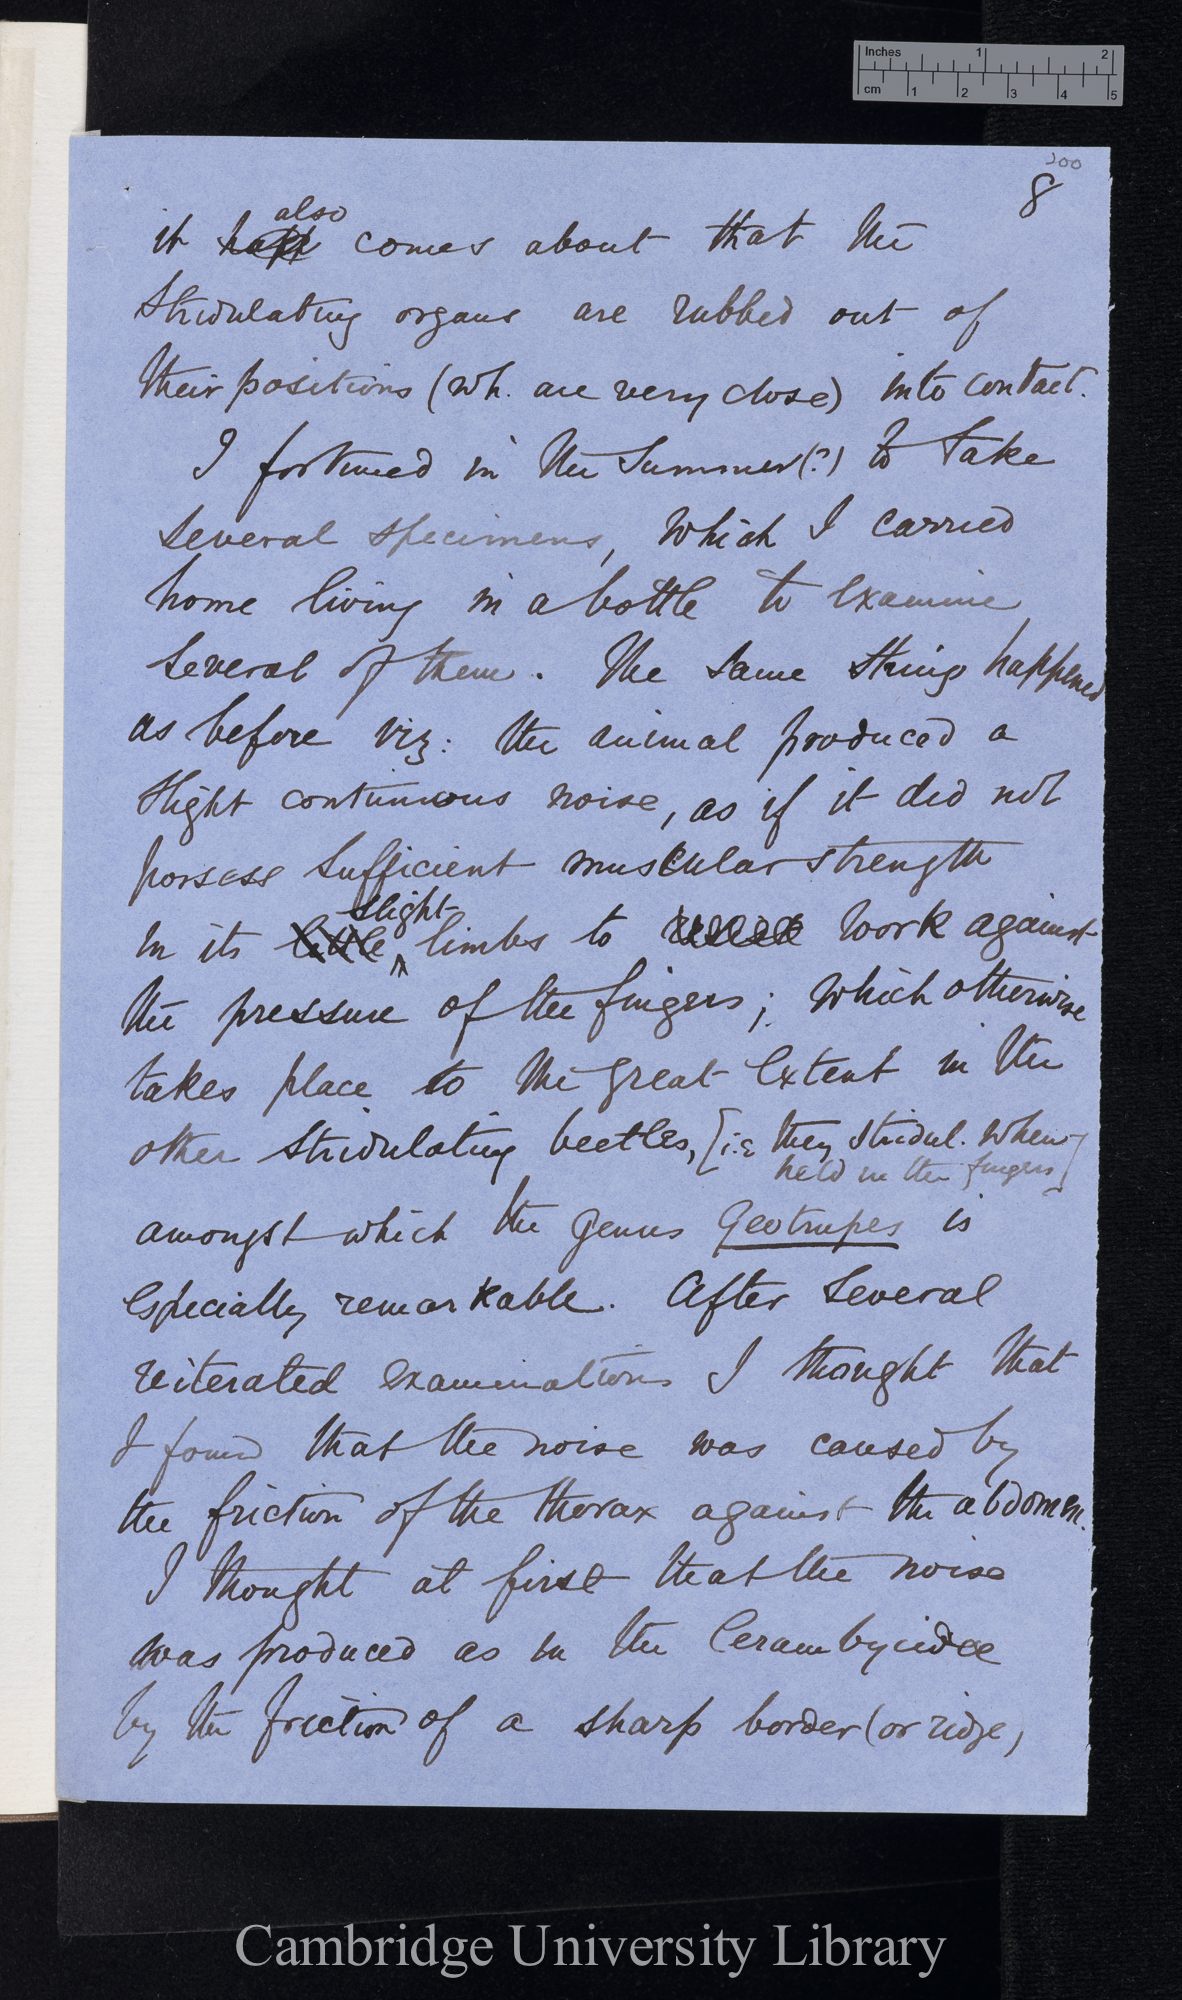 Inches 1 2
cm 1 2 3 4 5
200
8
also
it happ comes about that the
Stridulating organs are rubbed out of
their positions (wh. are very close) into contact.
I fortuned in the Summer(?) to take
several specimens, which I carried
home living in a bottle to examine
several of them. The same thing happened
as before viz: the animal produced a
slight continuous noise, as if it did not
possess sufficient muscular strength
slight
in its little limbs to work against
the pressure of the fingers; which otherwise
takes place to the great extent in the
other stridulating beetles, [i.e they stridul. when
held in the fingers]
amongst which the genus Geotrupes is
especially remarkable. After several
reiterated examinations I thought that
I found that the noise was caused by
the friction of the thorax against the abdomen.
I thought at first that the noise
was produced as in the Cerambycidae
by the friction of a sharp border (or ridge)
Cambridge University Library